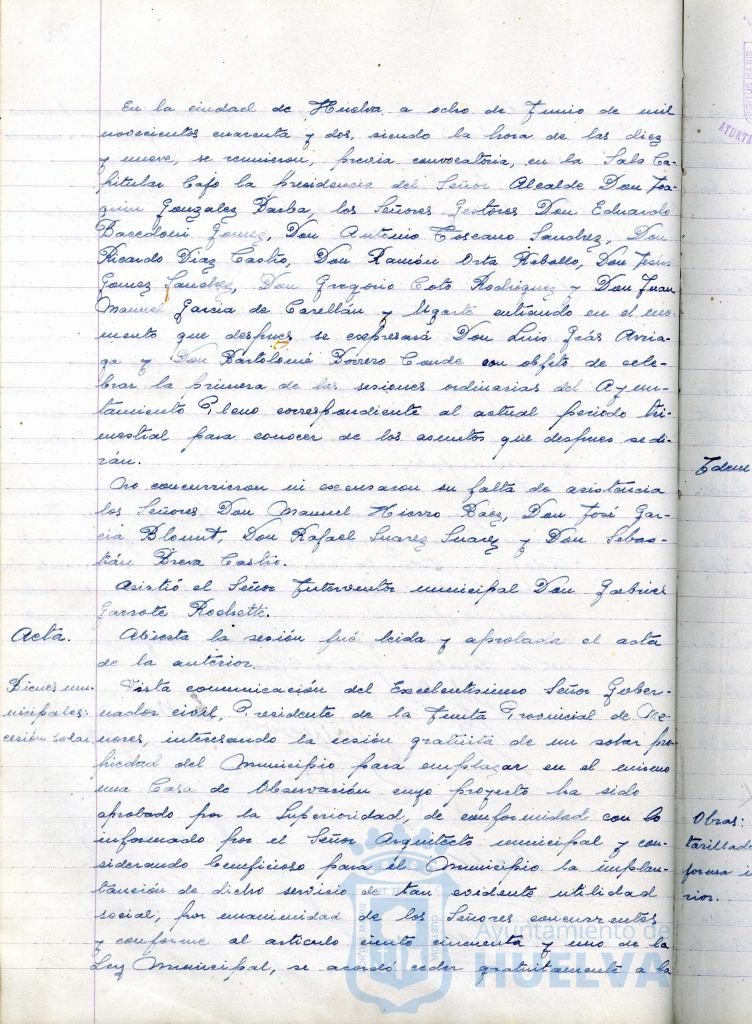 En la ciudad de Huelva a ocho de Junio de mil
novecientos cuarenta y dos, siendo la hora de las diez
y nueve, se reunieron, previa convocatoria, en la Sala Ca-
pitular bajo la presidencia del Señor Alcalde Don Joa-
quin Gonzalez Barba, los Señores Gestores Don Eduardo
Bacedoni Gomez, Don Antonio Toscano Sanchez, Don
Ricardo Diaz Castro, Don Ramón Orta Rebollo, Don Jesús
Gomez Sanchez, Don Gregorio Coto Rodriguez y Don Juan
Manuel Garcia de Castellán y Ugarte entrando en el mo-
mento que despues se expresará Don Luis Arria-
ga y Don Bartolomé Borrero Conde con objeto de cele-
brar la primera de las sesiones ordinarias del Ayun-
tamiento Pleno correspondiente al actual periodo tri-
mestral para conocer de los asuntos que despues se di-
rán.
No concurrieron ni excusaron su falta de asistencia
los Señores Don Manuel Hierro Baez, Don José Gar-
cia Blount, Don Rafael Suarez Suarez y Don Sebas-
tián Breva Castro.
Asistió el Señor Interventor municipal Don Gabriel
Garrote Rochett.
Acta.
Abierta la sesión fué leida y aprobada el acta
de la anterior.
Bienes mu-
nicipales:
cesión solar
Vista comunicación del Excelentisimo Señor Gober-
nador civil, Presidente de la Junta Provincial de Me-
nores, interesando la cesión gratuita de un solar pro-
piedad del Municipio para emplazar en el mismo
una Casa de Observación cuyo proyecto ha sido
aprobado por la Superioridad, de conformidad con lo
informado por el Señor Arquitecto municipal y con-
siderando beneficioso para el Municipio la implan-
tanción de dicho servicio de tan evidente utilidad
social, por unanimidad de los Señores concurrentes
y conforme al articulo ciento cincuenta y uno de la
Ley Municipal, se acordó ceder gratuitamente a la
Ayuntamiento de
HUELVA
Idem
Obras: